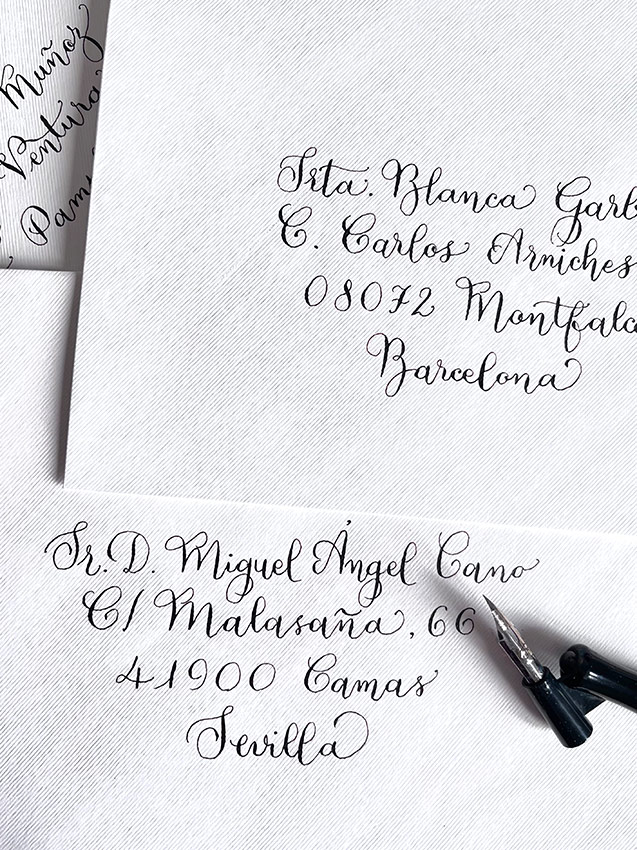 Muñoz
Ventura
Srta. Blanca
C. Carlos Arniches
08072
Barcelona
Sr. D. Miguel Ángel Cano
C/ Malasaña, 66
41900 Camas
Sevilla